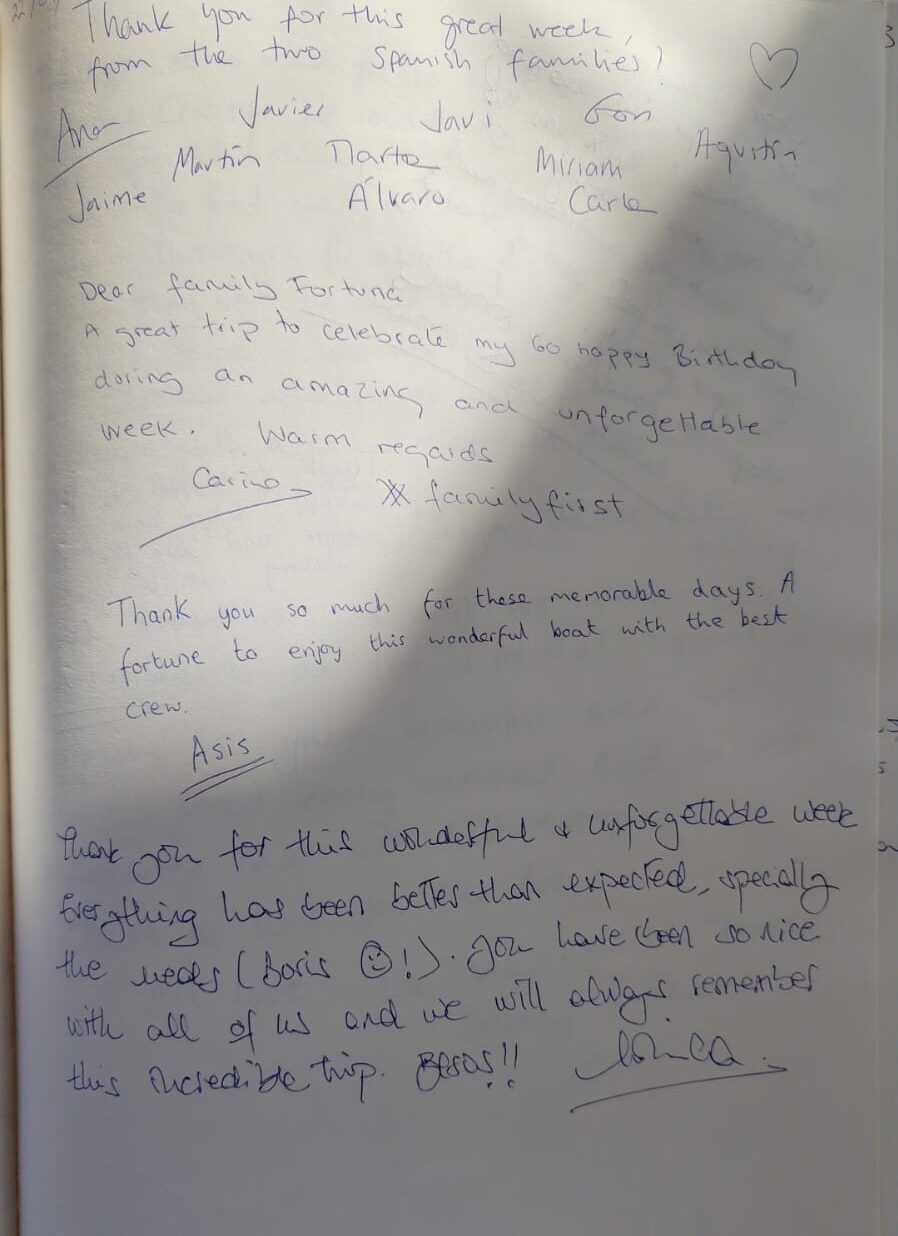 Thank you for this great week,
from the two Spanish families!
Ana Javier Javi Gori
Martín Marta Miriam Agustín
Jaime Álvaro Carla
Dear family Fortuna
A great trip to celebrate my 60 happy Birthday
during an amazing and unforgettable
week. Warm regards
# family first
Thank you so much for these memorable days. A
fortune to enjoy this wonderful boat with the best
crew.
Asis
Thank you for this wonderful & unforgettable week
Everything has been better than expected, specially
the meals (Boris ☺!). You have been so nice
with all of us and we will always remember
this incredible trip. Besos!!